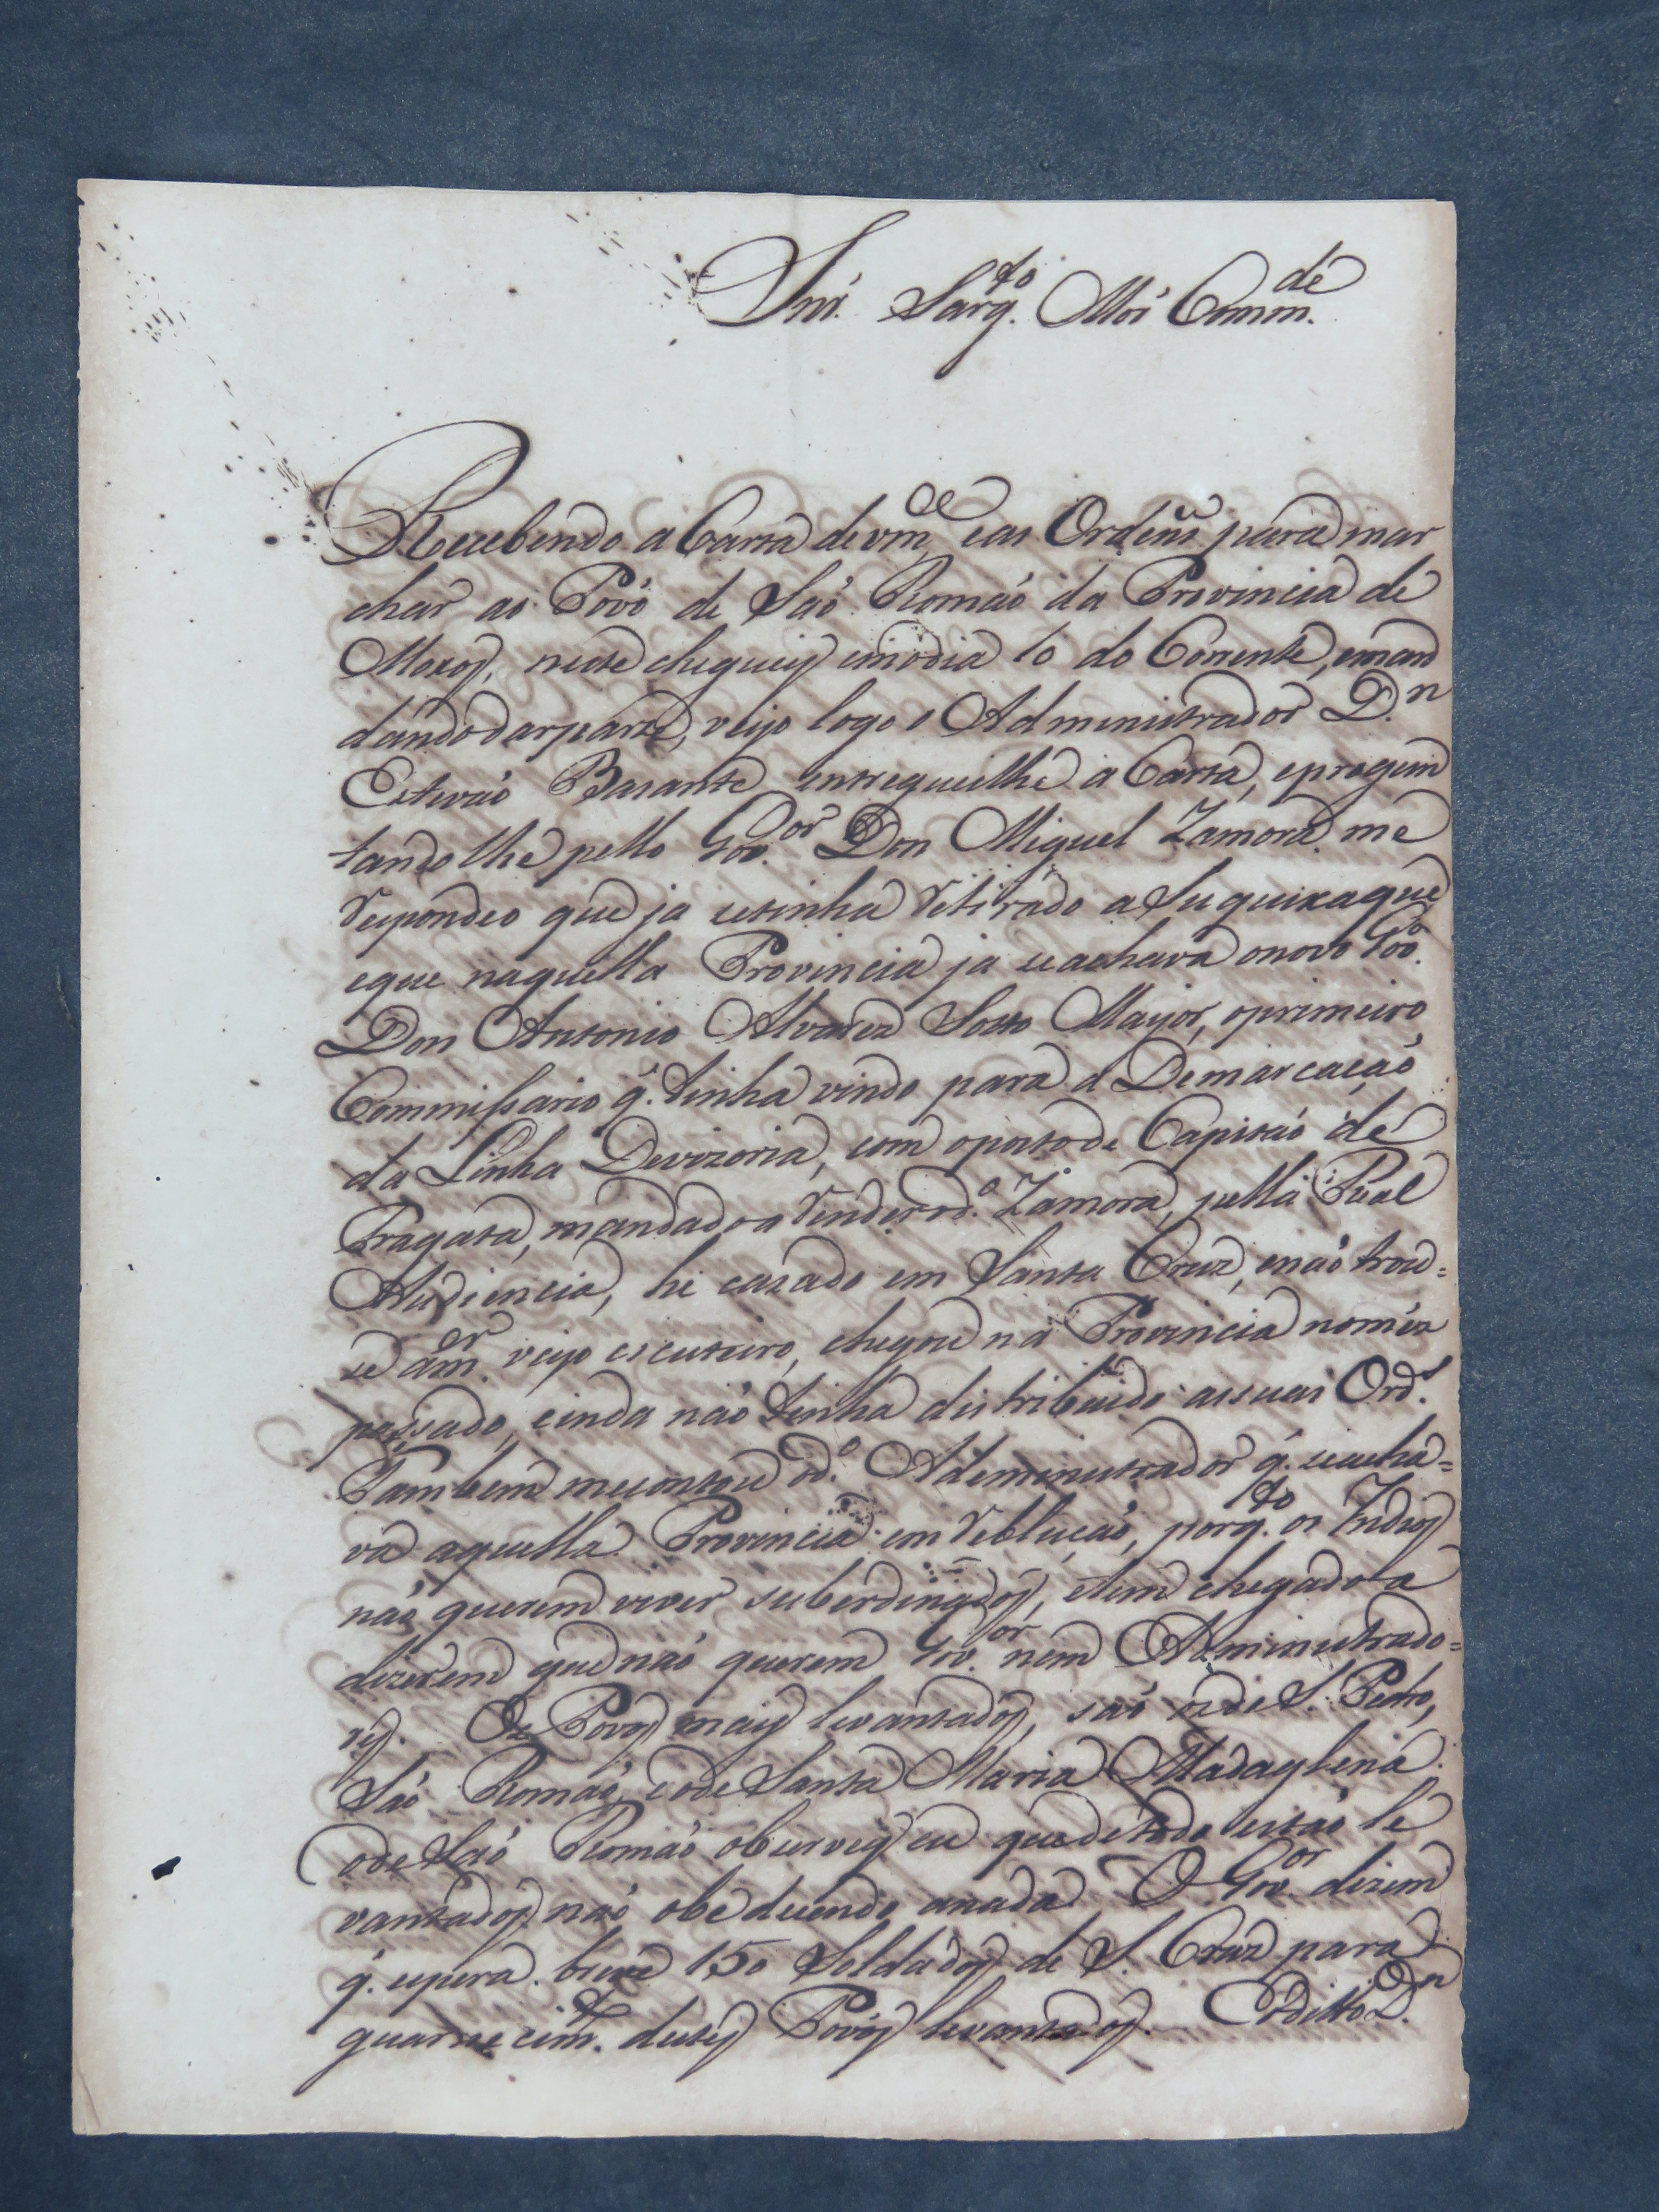 Snr. Sarg.to Mór Comm.de
Recebendo a Carta de vm.ce e as Ordens para mar
char ao Povo de São Romão da Provincia de
Moxos, neste cheguei em o dia 10 do Corrente, e man
dando dar parte, veyo logo o Administrador D.n
Estevão Barante entregueilhe a Carta, e progun
tandolhe pello Gov.or Don Miguel Zamora me
respondeo que ja se tinha retirado a Suquixaque
e que naquella Provincia ja se achava o novo Gov.or
Don Antonio Alvarez Soto Mayor, o primeiro
Commissario q. tinha vindo para a Demarcação
da Linha Devizoria, com o posto de Capitão de
Fragata, mandado a render o d.o Zamora, pella Real
Audiencia, he cazado em Santa Cruz, e não trou=
se a m.er veyo escuteiro, chegou na Provincia no mez
passado, e inda não tinha distribuido as suas Ord.s
Tambem me contou o d.o Administrador q. se acha=
va aquella Provincia em reblução, porq.to os Indios
não querem viver suberdinados, e tem chegado a
dizerem que não querem Gov.or nem Administrado=
res. Os Povos mais levantados, são o de S. Pedro,
São Romão, e o de Santa Maria Madaglena.
o de São Romão observey eu que de todo estão le
vantados não obedecendo a nada O Gov.or dizem
q. espera breve 150 Soldados de S. Cruz para
guarnecim.to destes Povos levantados. O ditto D.n